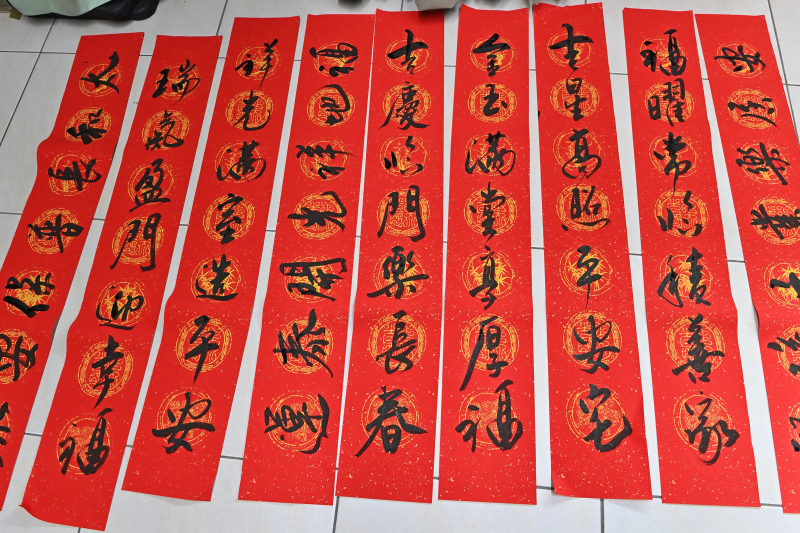 福曜常臨積善家
吉星高照平安宅
金玉滿堂享厚福
吉慶臨門樂長春
福地祥光開泰運
祥光滿室造平安
瑞氣盈門迎幸福